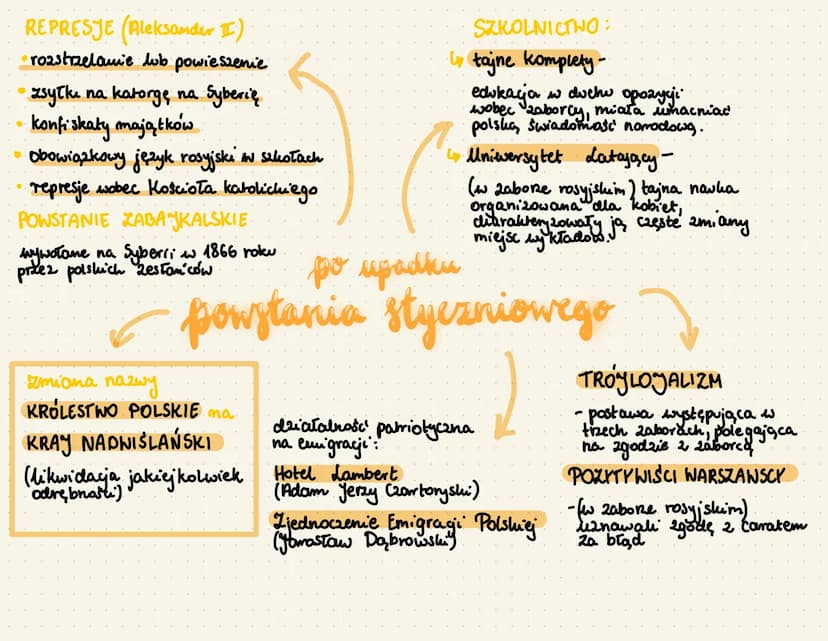 REPRESJE (Aleksander II)
• rozstrzelanie lub powieszenie
• zsyłki na katorgę na Syberię
• konfiskaty majątków
• obowiązkowy język rosyjski w szkołach
• represje wobec Kościoła katolickiego
POWSTANIE ZABAJKALSKIE
wywołane na Syberii w 1866 roku
przez polskich zesłańców
SZKOLNICTWO:
↳ tajne komplety-
edukacja w duchu opozycji
wobec zaborcy, miała umacniać
polską świadomość narodową.
↳ Uniwersytet Latający-
(w zaborze rosyjskim) tajna nauka
organizowana dla kobiet,
charakteryzowały ją częste zmiany
miejsc wykładów.
po upadku
powstania styczniowego
zmiana nazwy
KRÓLESTWO POLSKIE na
KRAJ NADWIŚLAŃSKI
(likwidacja jakiejkolwiek
odrębności)
działalność patriotyczna
na emigracji:
Hotel Lambert
(Adam Jerzy Czartoryski)
Zjednoczenie Emigracji Polskiej
(Jarosław Dąbrowski)
TRÓJLOJALIZM
- postawa występująca w
trzech zaborach, polegająca
na zgodzie z zaborcą
POZYTYWIŚCI WARSZAWSCY
-(w zaborze rosyjskim)
uznawali zgodę z caratem
za błąd